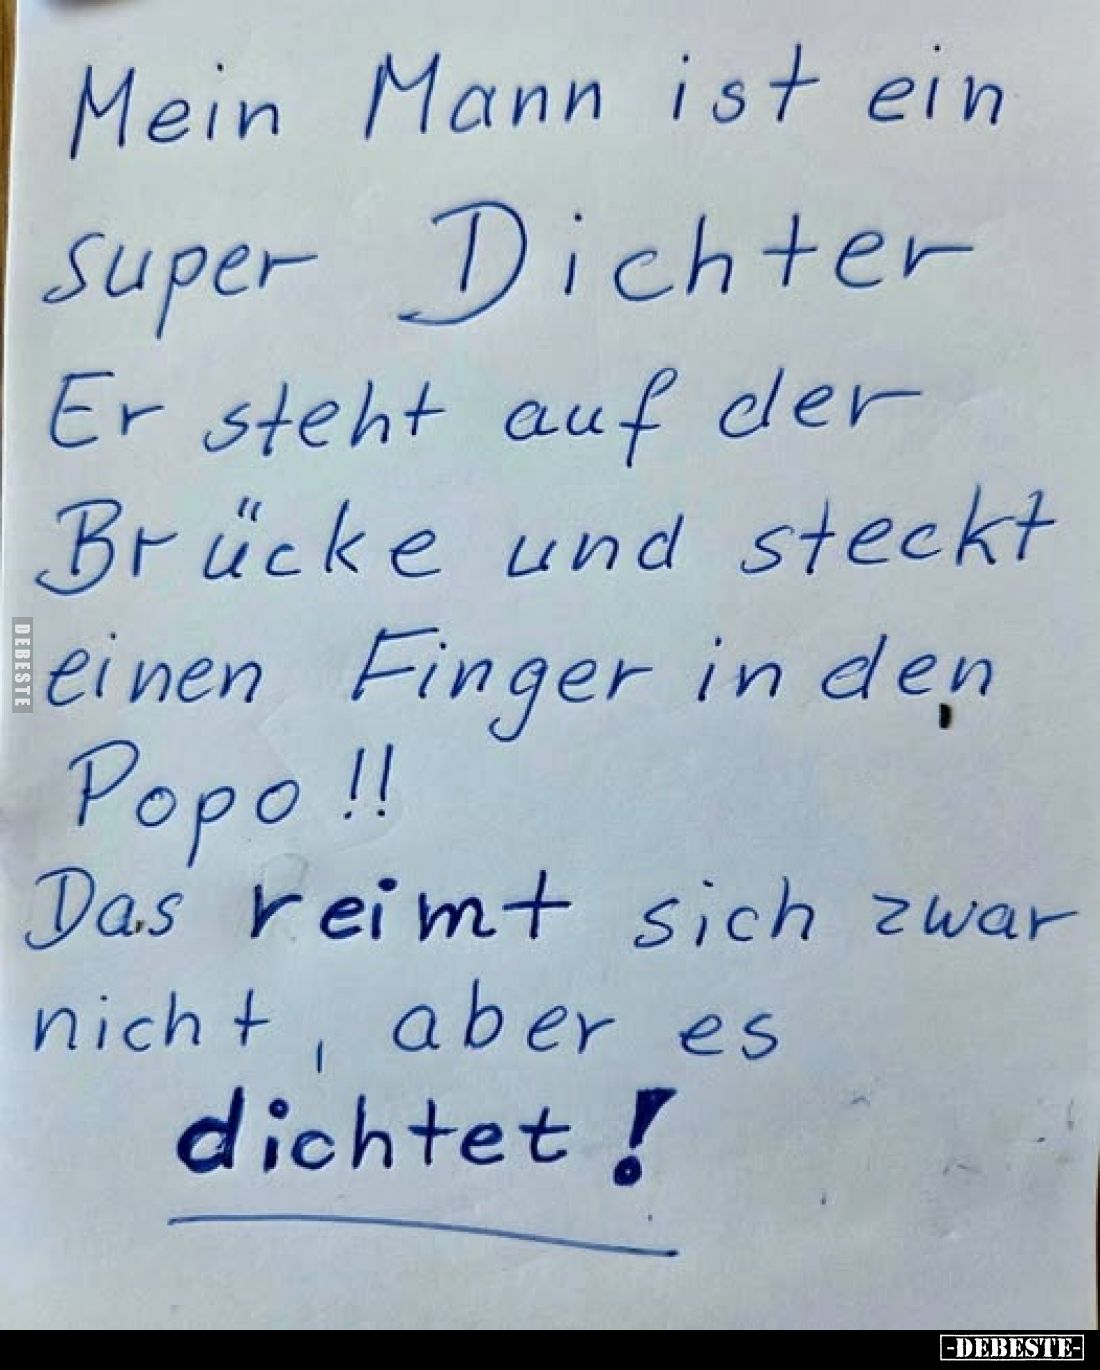 Mein Mann ist ein
super Dichter
Er steht auf der
Brücke und steckt
einen Finger in den
Popo!!
Das reimt sich zwar
nicht, aber es
dichtet!
DEBESTE
-DEBESTE-